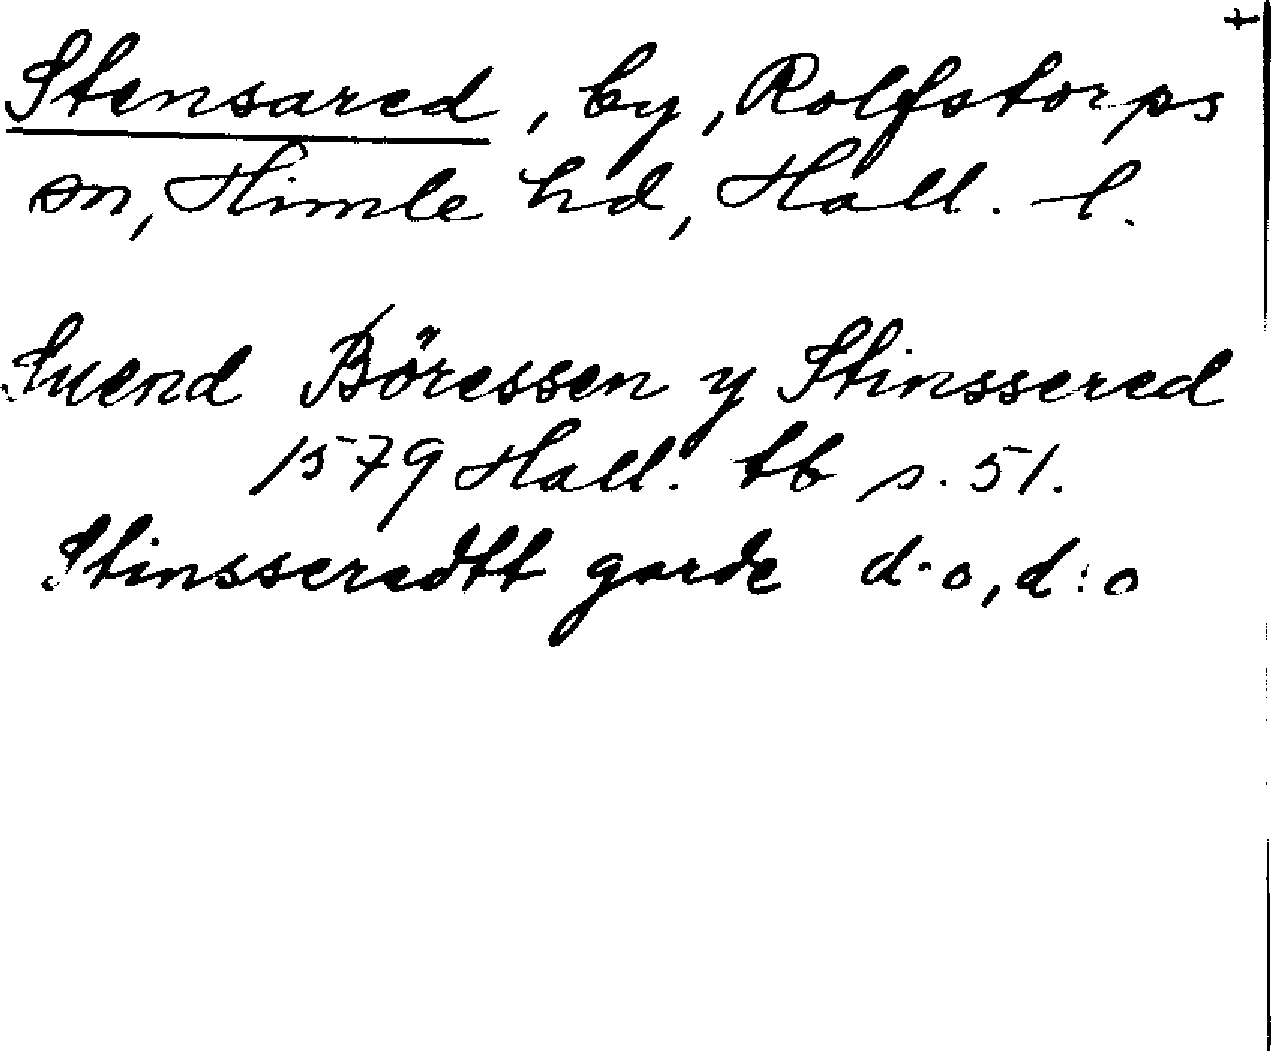 Stensared, by, Rolfstorps
sn, Himle hd, Hall. l.
Suend Böressen y Stinssered
1579 Hall. tb s. 51.
Stinsseredtt garde d.o, d:o